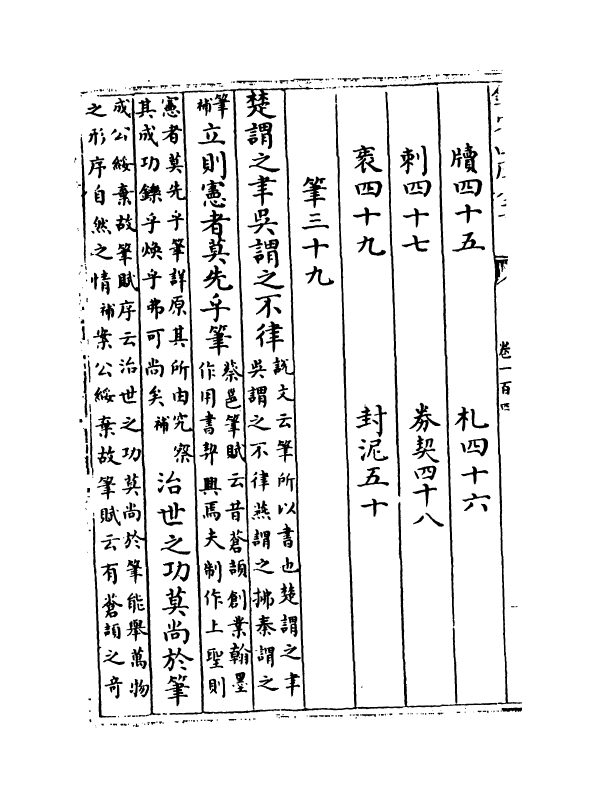 卷一百四
牘四十五　札四十六
刺四十七　券契四十八
袠四十九　封泥五十
筆三十九
楚謂之聿吳謂之不律
說文云筆所以書也楚謂之聿
吳謂之不律燕謂之拂秦謂之
筆
補
立則憲者莫先乎筆
蔡邕筆賦云昔蒼頡創業翰墨
作用書契興焉夫制作上聖則
憲者莫先乎筆詳原其所由究察
其成功鑠乎煥乎弗可尚矣補
治世之功莫尚於筆
成公綏棄故筆賦序云治世之功莫尚於筆能舉萬物
之形序自然之情補案公綏棄故筆賦云有蒼頡之奇